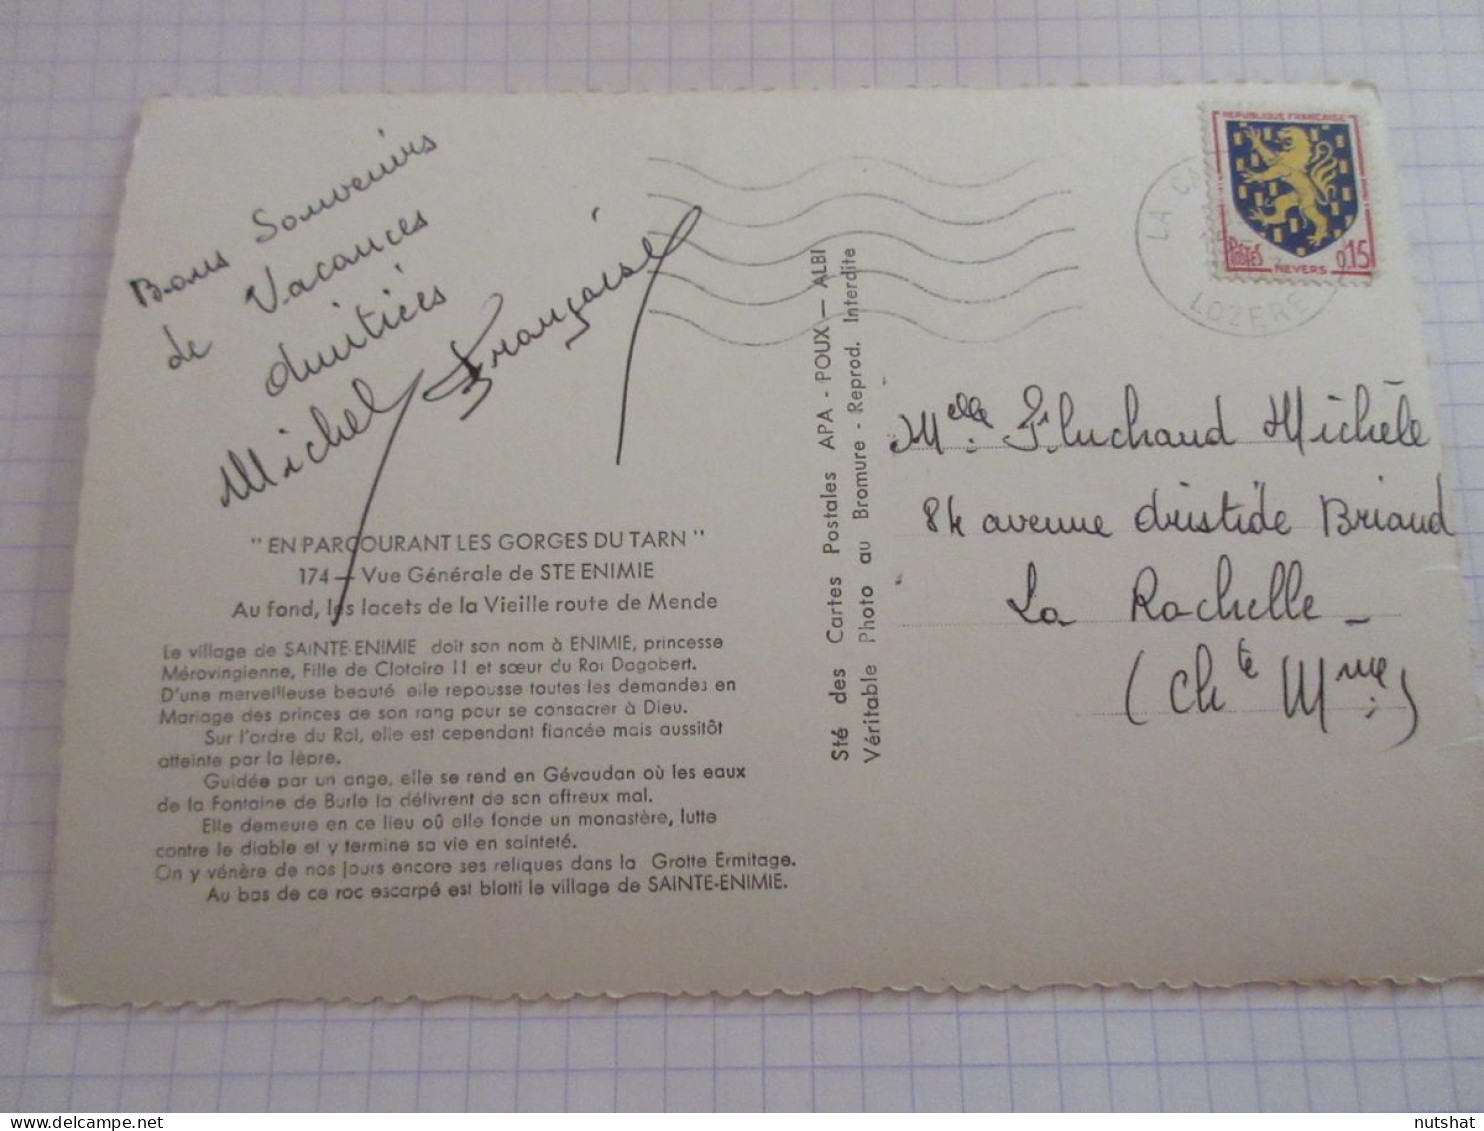 Bons Souvenirs
de Vacances
Amitiés
Michel Françoise
"EN PARCOURANT LES GORGES DU TARN"
174 — Vue Générale de STE ENIMIE
Au fond, les lacets de la Vieille route de Mende
Le village de SAINTE-ENIMIE doit son nom à ENIMIE, princesse
Mérovingienne, Fille de Clotaire II et sœur du Roi Dagobert.
D'une merveilleuse beauté elle repousse toutes les demandes en
Mariage des princes de son rang pour se consacrer à Dieu.
Sur l'ordre du Roi, elle est cependant fiancée mais aussitôt
atteinte par la lèpre.
Guidée par un ange, elle se rend en Gévaudan où les eaux
de la Fontaine de Burle la délivrent de son affreux mal.
Elle demeure en ce lieu où elle fonde un monastère, lutte
contre le diable et y termine sa vie en sainteté.
On y vénère de nos jours encore ses reliques dans la Grotte Ermitage.
Au bas de ce roc escarpé est blotti le village de SAINTE-ENIMIE.
Sté des Cartes Postales APA - POUX — ALBI
Véritable Photo au Bromure - Reprod. Interdite
REPUBLIQUE FRANÇAISE
POSTES 0,15
NEVERS
LA
LOZERE
Melle Pluchaud Michèle
84 avenue Aristide Briand
La Rochelle -
(Chte Mme)
nutshat